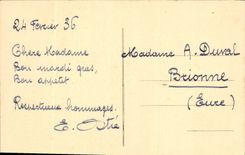 24 Février 36
Chère Madame
Bon mardi gras,
Bon appetit
Respectueux hommages.
E.
Madame A. Duval
Brionne
(Eure)